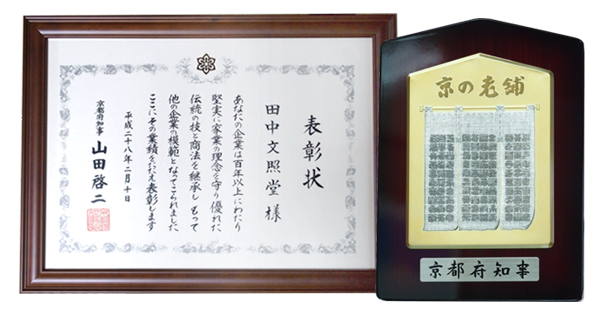 表彰状
田中文照堂 様
あなたの企業は百年以上にわたり
堅実に家業の理念を守り優れた
伝統の技と商法を継承しもって
他の企業の模範となってこられました
ここにその業績をたたえ表彰します
平成二十八年二月十日
京都府知事 山田啓二
京の老舗
京都府知事